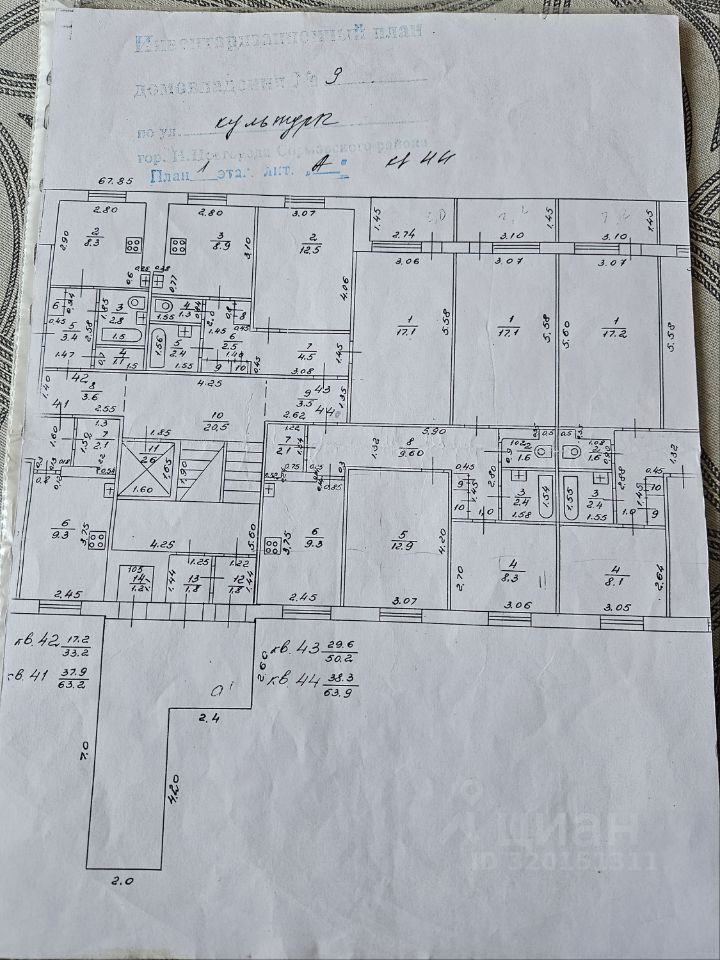 Инвентаризационный план
домовладения № 9
по ул. культуры
гор. Н.Новгорода Сормовского района
План 1 этаж лит. „А" кв 44
67.85
2.80 2.80 3.07 2.74 3.10 3.10
1.45 1.45 1.45
2.90 2/8.3 3/8.9 3.10 2/12.5 3.06 3.07 3.07
0.77
4.06
6 3/2.8 1.85 1.55 4/1.3 8
0.45 5/3.4 2.58 1.5 1.56 5/2.4 1.45 6/2.5 0.45
1/17.1 5.58 1/17.1 5.58 5.60 1/17.2 5.58
1.47 4/1.1 1.5 1.55 9 10 7/4.5 1.45
3.08
42 8/3.6 1.40 4.25 9/3.5 43 1.35
41 2.55 10/20.5 2.62 44
1.3 1.60 7/2.1 1.85 11/2.6 1.65 1.90 1.60
1.22 7/2.1 0.75 1.32 5.90 8/9.60
0.45 2.80 2/1.6 0.5 0.5 1.08 2/1.6 1.32
9 10 1.0 3/2.4 1.58 1.54 1.55 3/2.4 1.55 2.88 1.45 0.45 10 9 1.0
6/9.3 3.75 4.25 5.60 3.75 6/9.3 5/12.9 4.20 2.70 4/8.3 4/8.1 2.64
105 14/1.2 1.44 1.25 13/1.8 1.22 12/1.8 1.44
2.45 2.45 3.07 3.06 3.05
кв. 42 17.2/33.2 кв. 43 29.6/50.2
кв. 41 37.9/63.2 2.60 кв. 44 38.3/63.9
а'
2.4
7.0 4.20
2.0
циан
ID 320151311